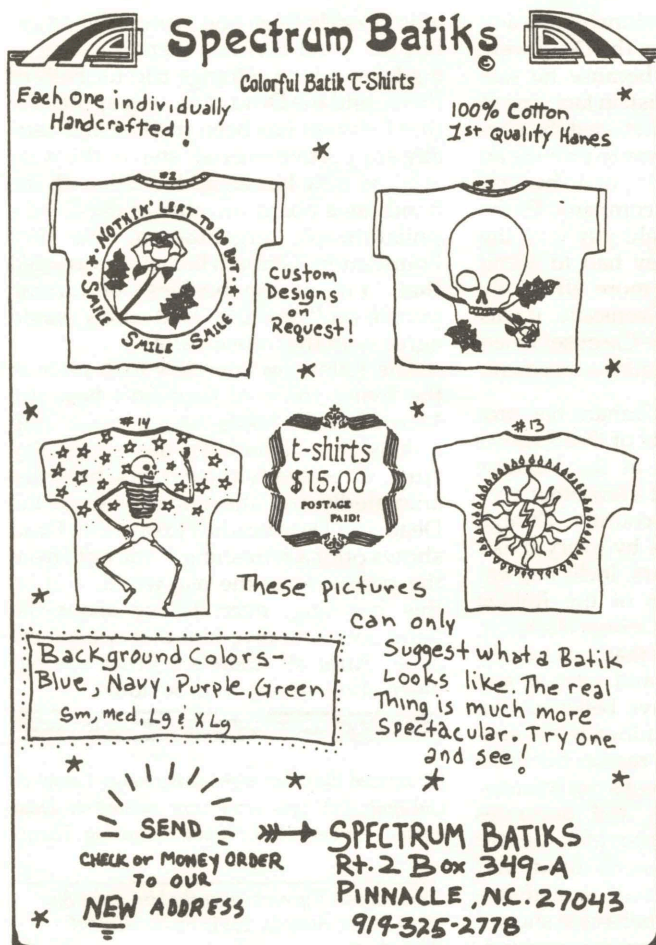 Spectrum Batiks
©
Colorful Batik T-Shirts
Each one individually
Handcrafted!
100% Cotton
1st Quality Hanes
#2
NOTHIN' LEFT TO DO BUT
SMILE SMILE SMILE
Custom
Designs
on
Request!
#3
#14
t-shirts
$15.00
POSTAGE
PAID!
#13
These pictures
can only
Suggest what a Batik
Looks like. The real
Thing is much more
Spectacular. Try one
and see!
Background Colors-
Blue, Navy. Purple, Green
Sm, med, Lg & X Lg
SEND
CHECK or MONEY ORDER
TO OUR
NEW ADDRESS
SPECTRUM BATIKS
Rt. 2 Box 349-A
PINNACLE, N.C. 27043
919-325-2778